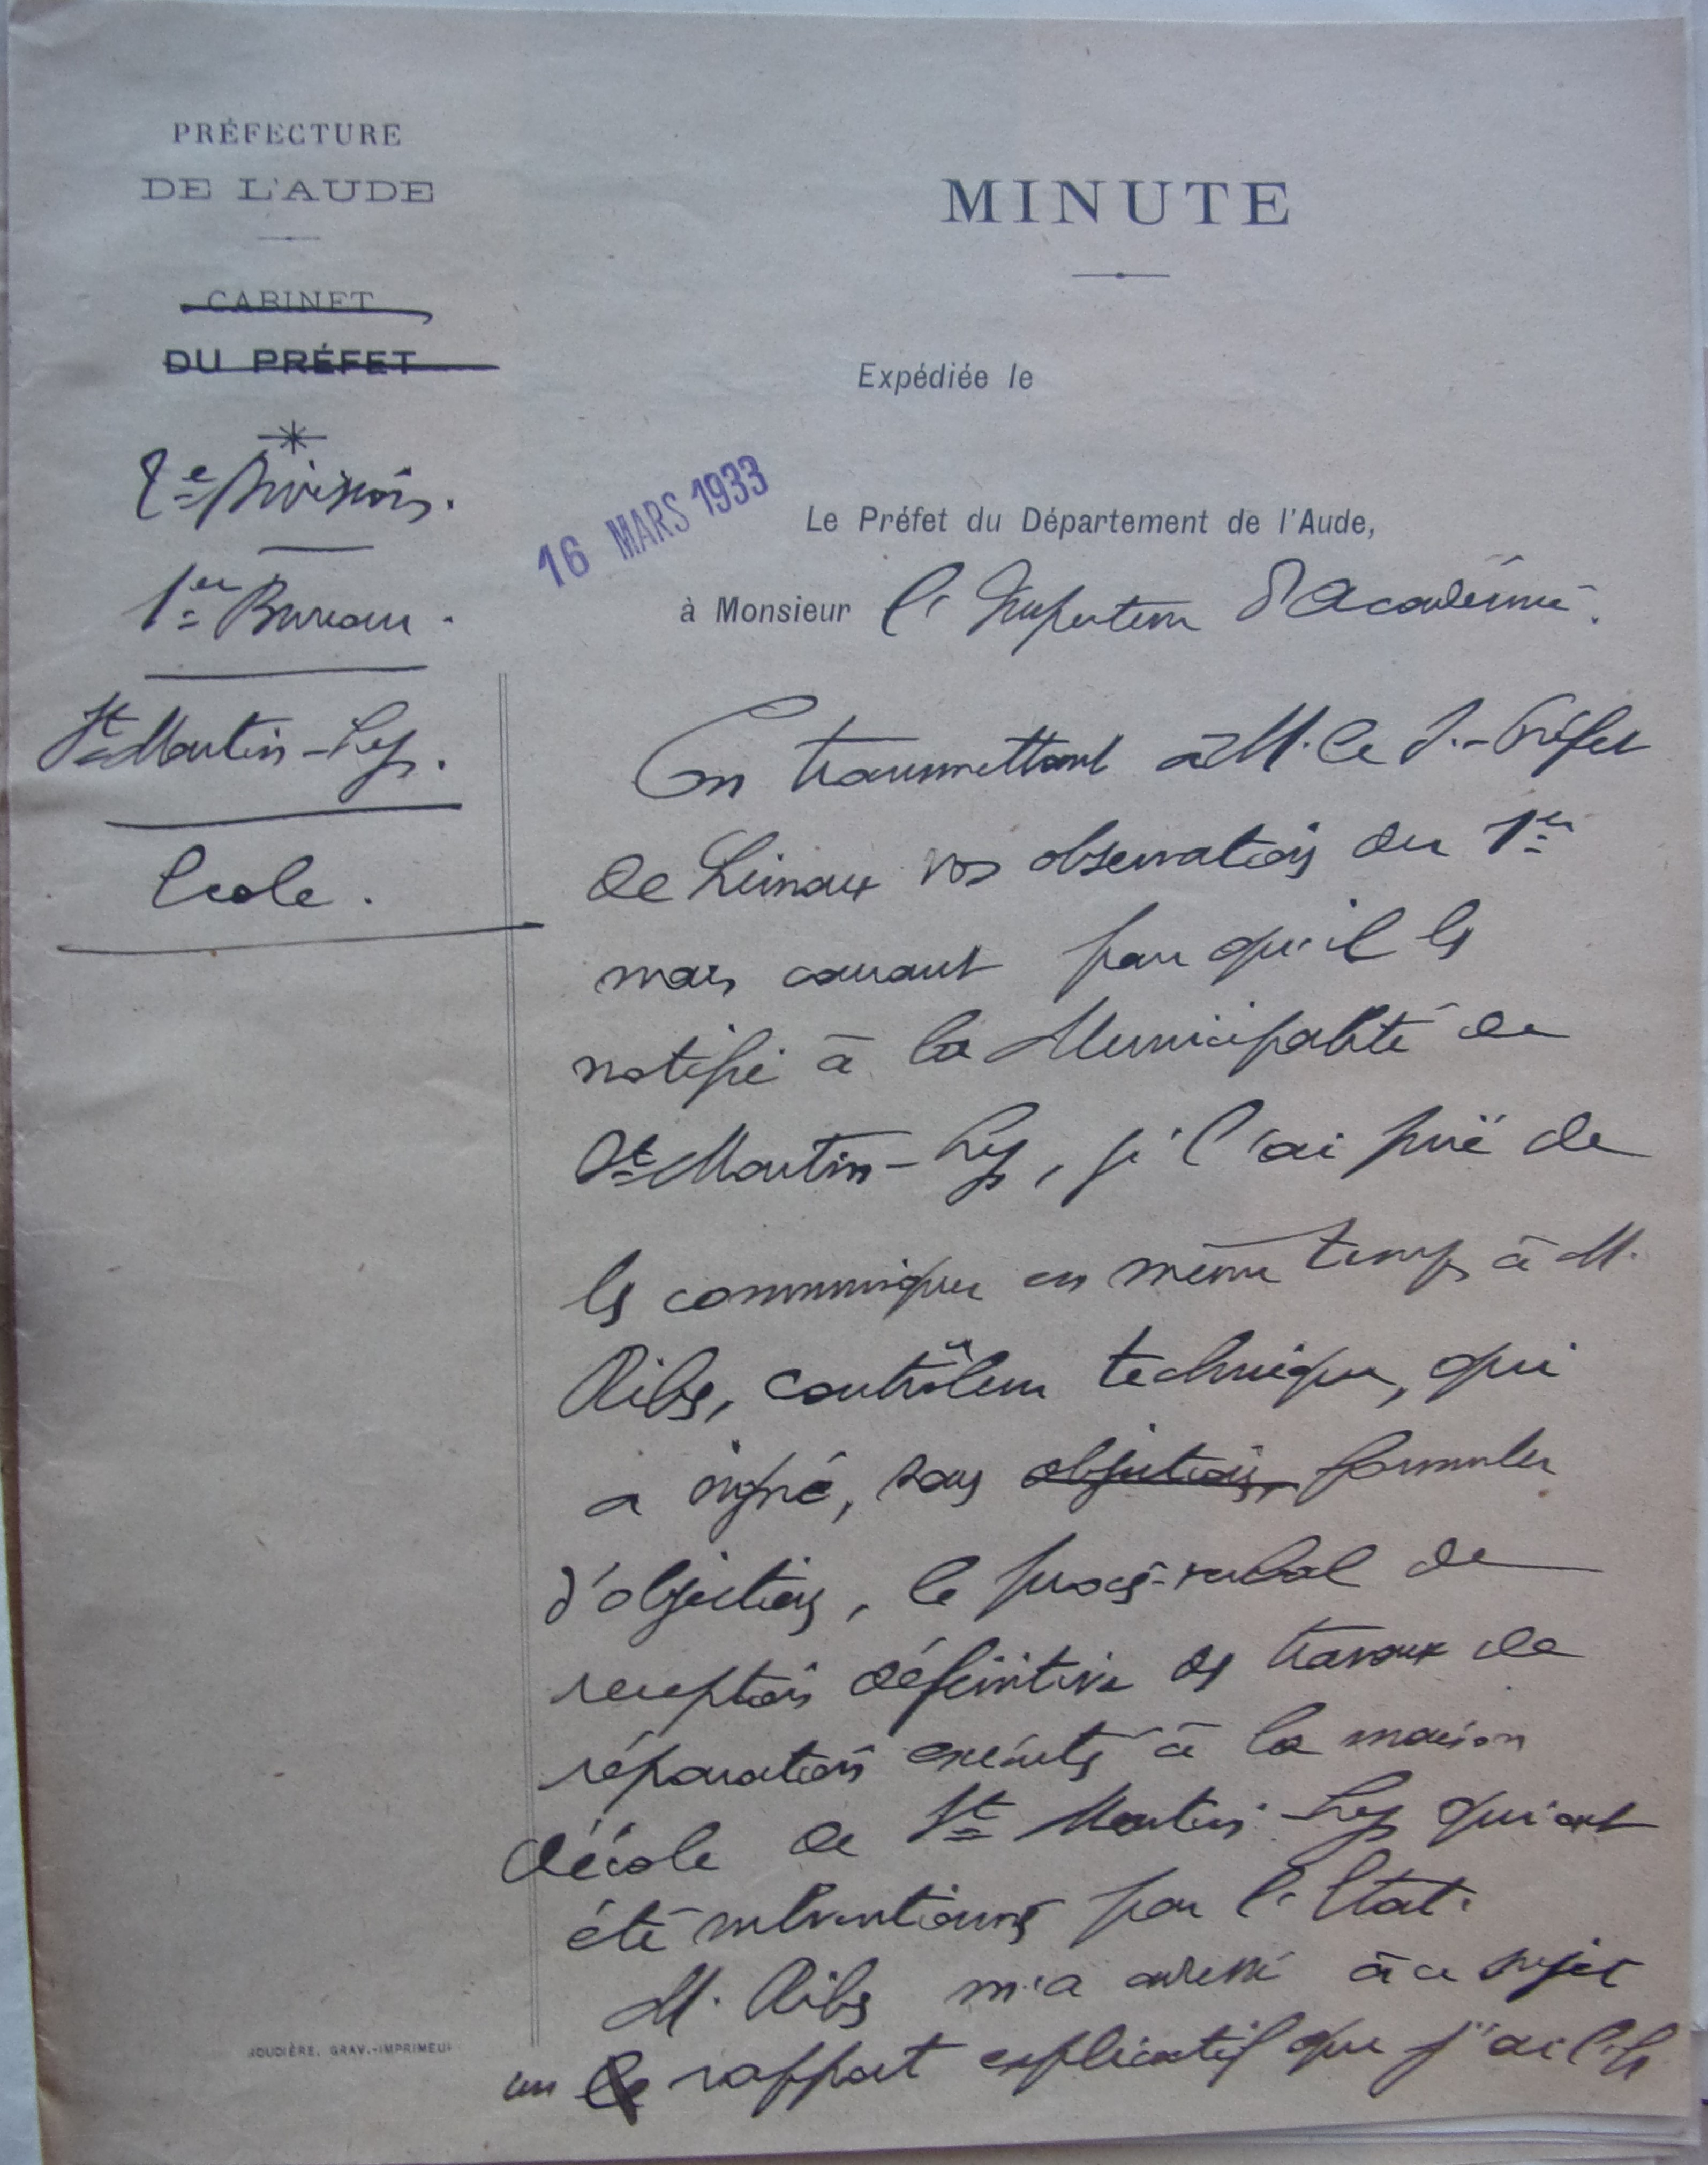 PRÉFECTURE
DE L'AUDE
CABINET
DU PRÉFET
2e Division.
1er Bureau.
St Martin-Lys.
Ecole.
MINUTE
Expédiée le
16 MARS 1933
Le Préfet du Département de l'Aude,
à Monsieur l'Inspecteur d'Académie.
En transmettant à M. le S.-Préfet
de Limoux vos observations du 1er
mars courant pour qu'il les
notifie à la Municipalité de
St Martin-Lys, je l'ai prié de
les communiquer en même temps à M.
Ribes, contrôleur technique, qui
a signé, sans objections, formuler
d'objections, le procès-verbal de
reception définitive des travaux de
réparations exécutés à la maison
d'école de St Martin-Lys qui ont
été subventionnés par l'Etat.
M. Ribes m'a adressé à ce sujet
un le rapport explicatif que j'ai l'h
JOUDIÈRE, GRAV.-IMPRIMEUR